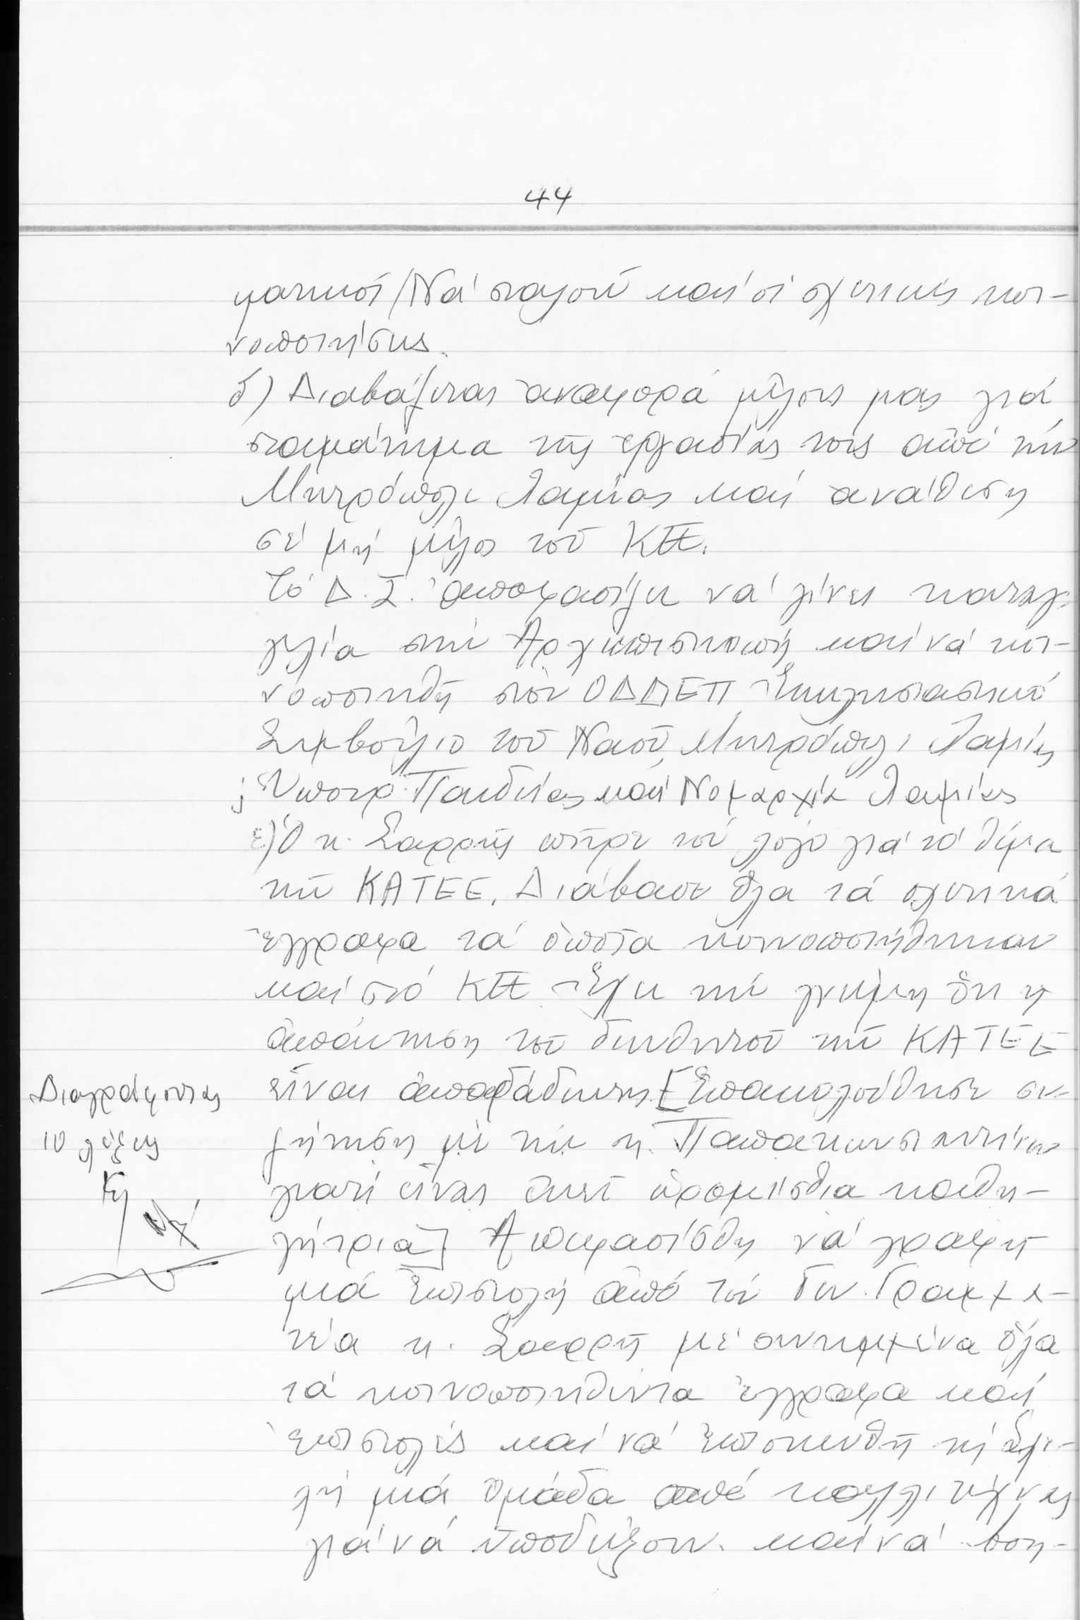 44
ματικού / Νά σταλοῦν καί οἱ σχετικές κοι-
νοποιήσεις.
δ) Διαβάζεται ἀναφορά μέλους μας γιά
σταμάτημα τῆς ἐργασίας τους ἀπό τήν
Μητρόπολι Λαμίας καί ἀνάθεση
σέ μή μέλος τοῦ ΚΕΕ.
Τό Δ.Σ. ἀποφασίζει νά γίνει καταγ-
γελία στήν Ἀρχιεπισκοπή καί νά κοι-
νοποιηθῆ στόν ΟΔΔΕΠ Ἐκκλησιαστικό
Συμβούλιο τοῦ Ναοῦ, Μητρόπολι Λαμίας
Ὑπουρ. Παιδείας καί Νομαρχία Λαμίας
ε) Ὁ κ. Σαρρῆς πῆρε τό λόγο γιά τό θέμα
τῶν ΚΑΤΕΕ. Διάβασε ὅλα τά σχετικά
ἔγγραφα τά ὁποῖα κοινοποιήθηκαν
καί στό ΚΕΕ. Ἔχει τήν γνώμη ὅτι ἡ
ἀπάντηση τοῦ διευθυντοῦ τῶν ΚΑΤΕΕ
εἶναι ἀπαράδεκτη. [Ἐπακολούθησε συ-
ζήτηση μέ τήν κ. Παπακωνσταντίνου
γιατί εἶναι ἐκεῖ ὡρομίσθια καθη-
γήτρια] Ἀποφασίσθη νά γραφῆ
μιά ἐπιστολή ἀπό τόν Γεν. Γραμμα-
τέα κ. Σαρρῆ μέ συνημμένα ὅλα
τά κοινοποιηθέντα ἔγγραφα καί
ἐπιστολές καί νά ἐπισκεφθῆ τή σχο-
λή μιά ὁμάδα ἀπό καλλιτέχνες
γιά νά ὑποδείξουν καί νά βοη-
Διαγράφονται
10 λέξεις